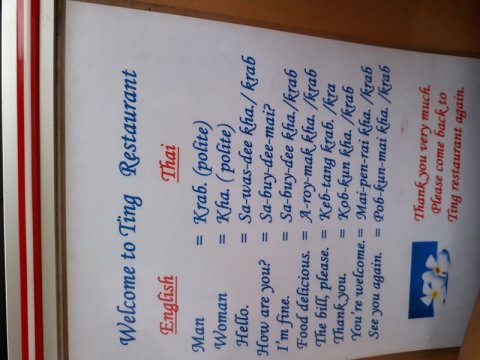 Welcome to Ting Restaurant
English Thai
Man = Krab. (polite)
Woman = Kha. ( polite)
Hello. = Sa-was-dee kha./ krab
How are you? = Sa-buy-dee-mai?
I'm fine. = Sa-buy-dee kha./krab
Food delicious. = A-roy-mak kha. /krab
The bill, please. = Keb-tang krab. /kra
Thank you. = Kob-kun kha. /krab
You're welcome. = Mai-pen-rai kha. /krab
See you again. = Pob-kun-mai kha. /krab
Thank you very much.
Please come back to
Ting restaurant again.